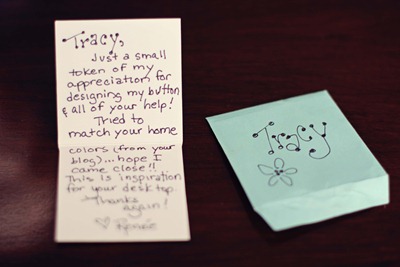 Tracy,
Just a small
token of my
appreciation for
designing my button
& all of your help!
Tried to
match your home
colors (from your
blog)...hope I
came close!!
This is inspiration
for your desktop.
Thanks
again!
Tracy